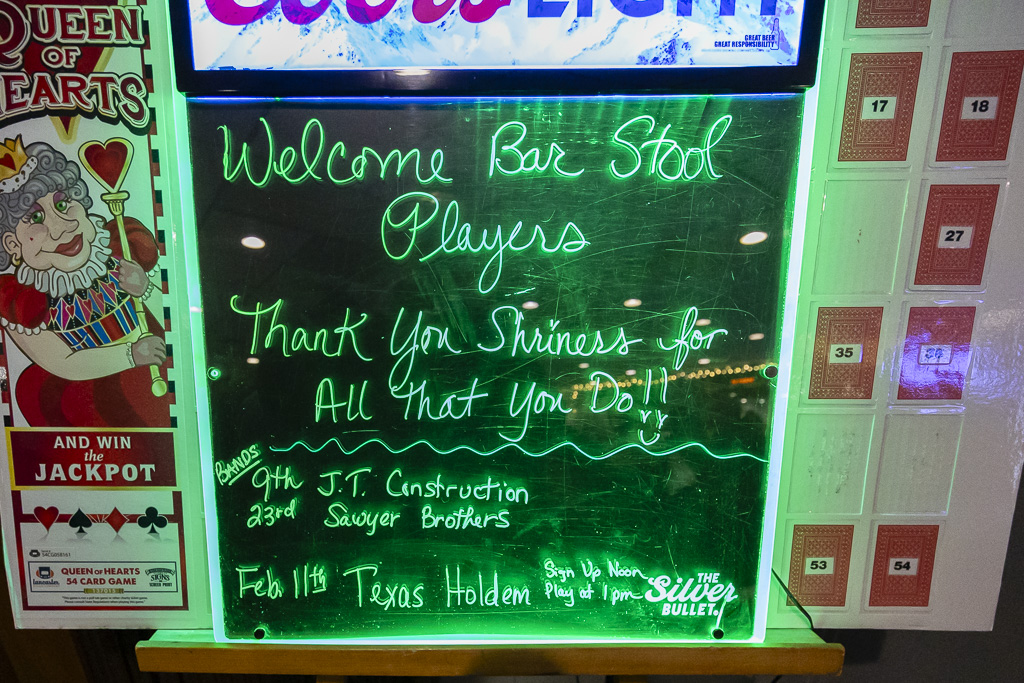 Coors LIGHT
GREAT BEER
GREAT RESPONSIBILITY
QUEEN
OF
HEARTS
AND WIN
the
JACKPOT
QUEEN OF HEARTS
54 CARD GAME
Welcome Bar Stool
Players
Thank You Shriness for
All That You Do!!
BANDS
9th J.T. Construction
23rd Sawyer Brothers
Feb. 11th Texas Holdem
Sign Up Noon
Play at 1 pm
THE
Silver
BULLET.
17
18
27
35
36
53
54